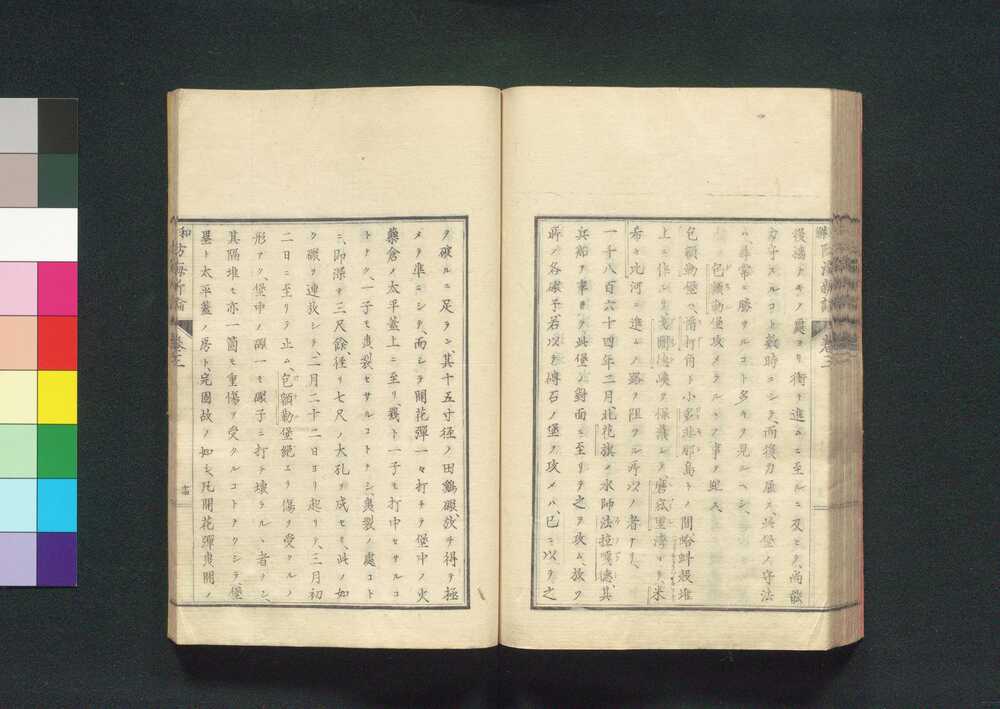 後濠トキノ處ヨリ衝キ進ムニ至ルニ及ヒテ、尚能
力守スルコト數時ニシテ、而後力屈ス、此堡ノ守法
ハ、尋常ニ勝サルコト多キヲ見ルヘシ、
包額勒堡攻メラルヽノ事ヲ照ス、
包額勒堡ハ、階打角ト小多非邪島トノ間蛤蚌殼堆
上ニ作シ、戈爾德峽ヲ保護シテ磨庇里灣ヨリ、米
希ヒ比河ニ進ムノ路ヲ阻ツル所以ノ者ナリ、
一千八百六十四年二月北花旗ノ水師法拉嘎德、其
兵船ヲ率テ此堡ノ對面ニ至リテ之ヲ攻ム、放ツ
所ノ各礮子、若以テ磚石ノ堡ヲ攻メハ、已ニ以テ之
ヲ破ルニ足ラン、其十五寸徑ノ田鷄礮、放チ得テ極
メテ準ニシテ、而シテ開花彈一々打チテ堡中ノ火
藥倉ノ太平蓋上ニ至リ、幾ト一子モ打中セサルコ
トナク、一子モ曳裂セサルコトナシ、曳裂ノ處コト
ニ、即深サ三尺餘、徑リ七尺ノ大孔ヲ成セモ、此ノ如
ク礮ヲ連放シテ、二月二十二日ヨリ起リテ、三月初
二日ニ至リテ止ム、包額勒堡絕エテ傷ヲ受クルノ
形ナク、堡中ノ礮一モ礮子ニ打チ壞ラルヽ者ナシ、
其隔堆モ亦一箇モ重傷ヲ受クルコトナクシテ、堡
壘ト太平蓋ノ房ト、完固故ノ如シ、凡開花彈曳開ノ
防海新論
卷三